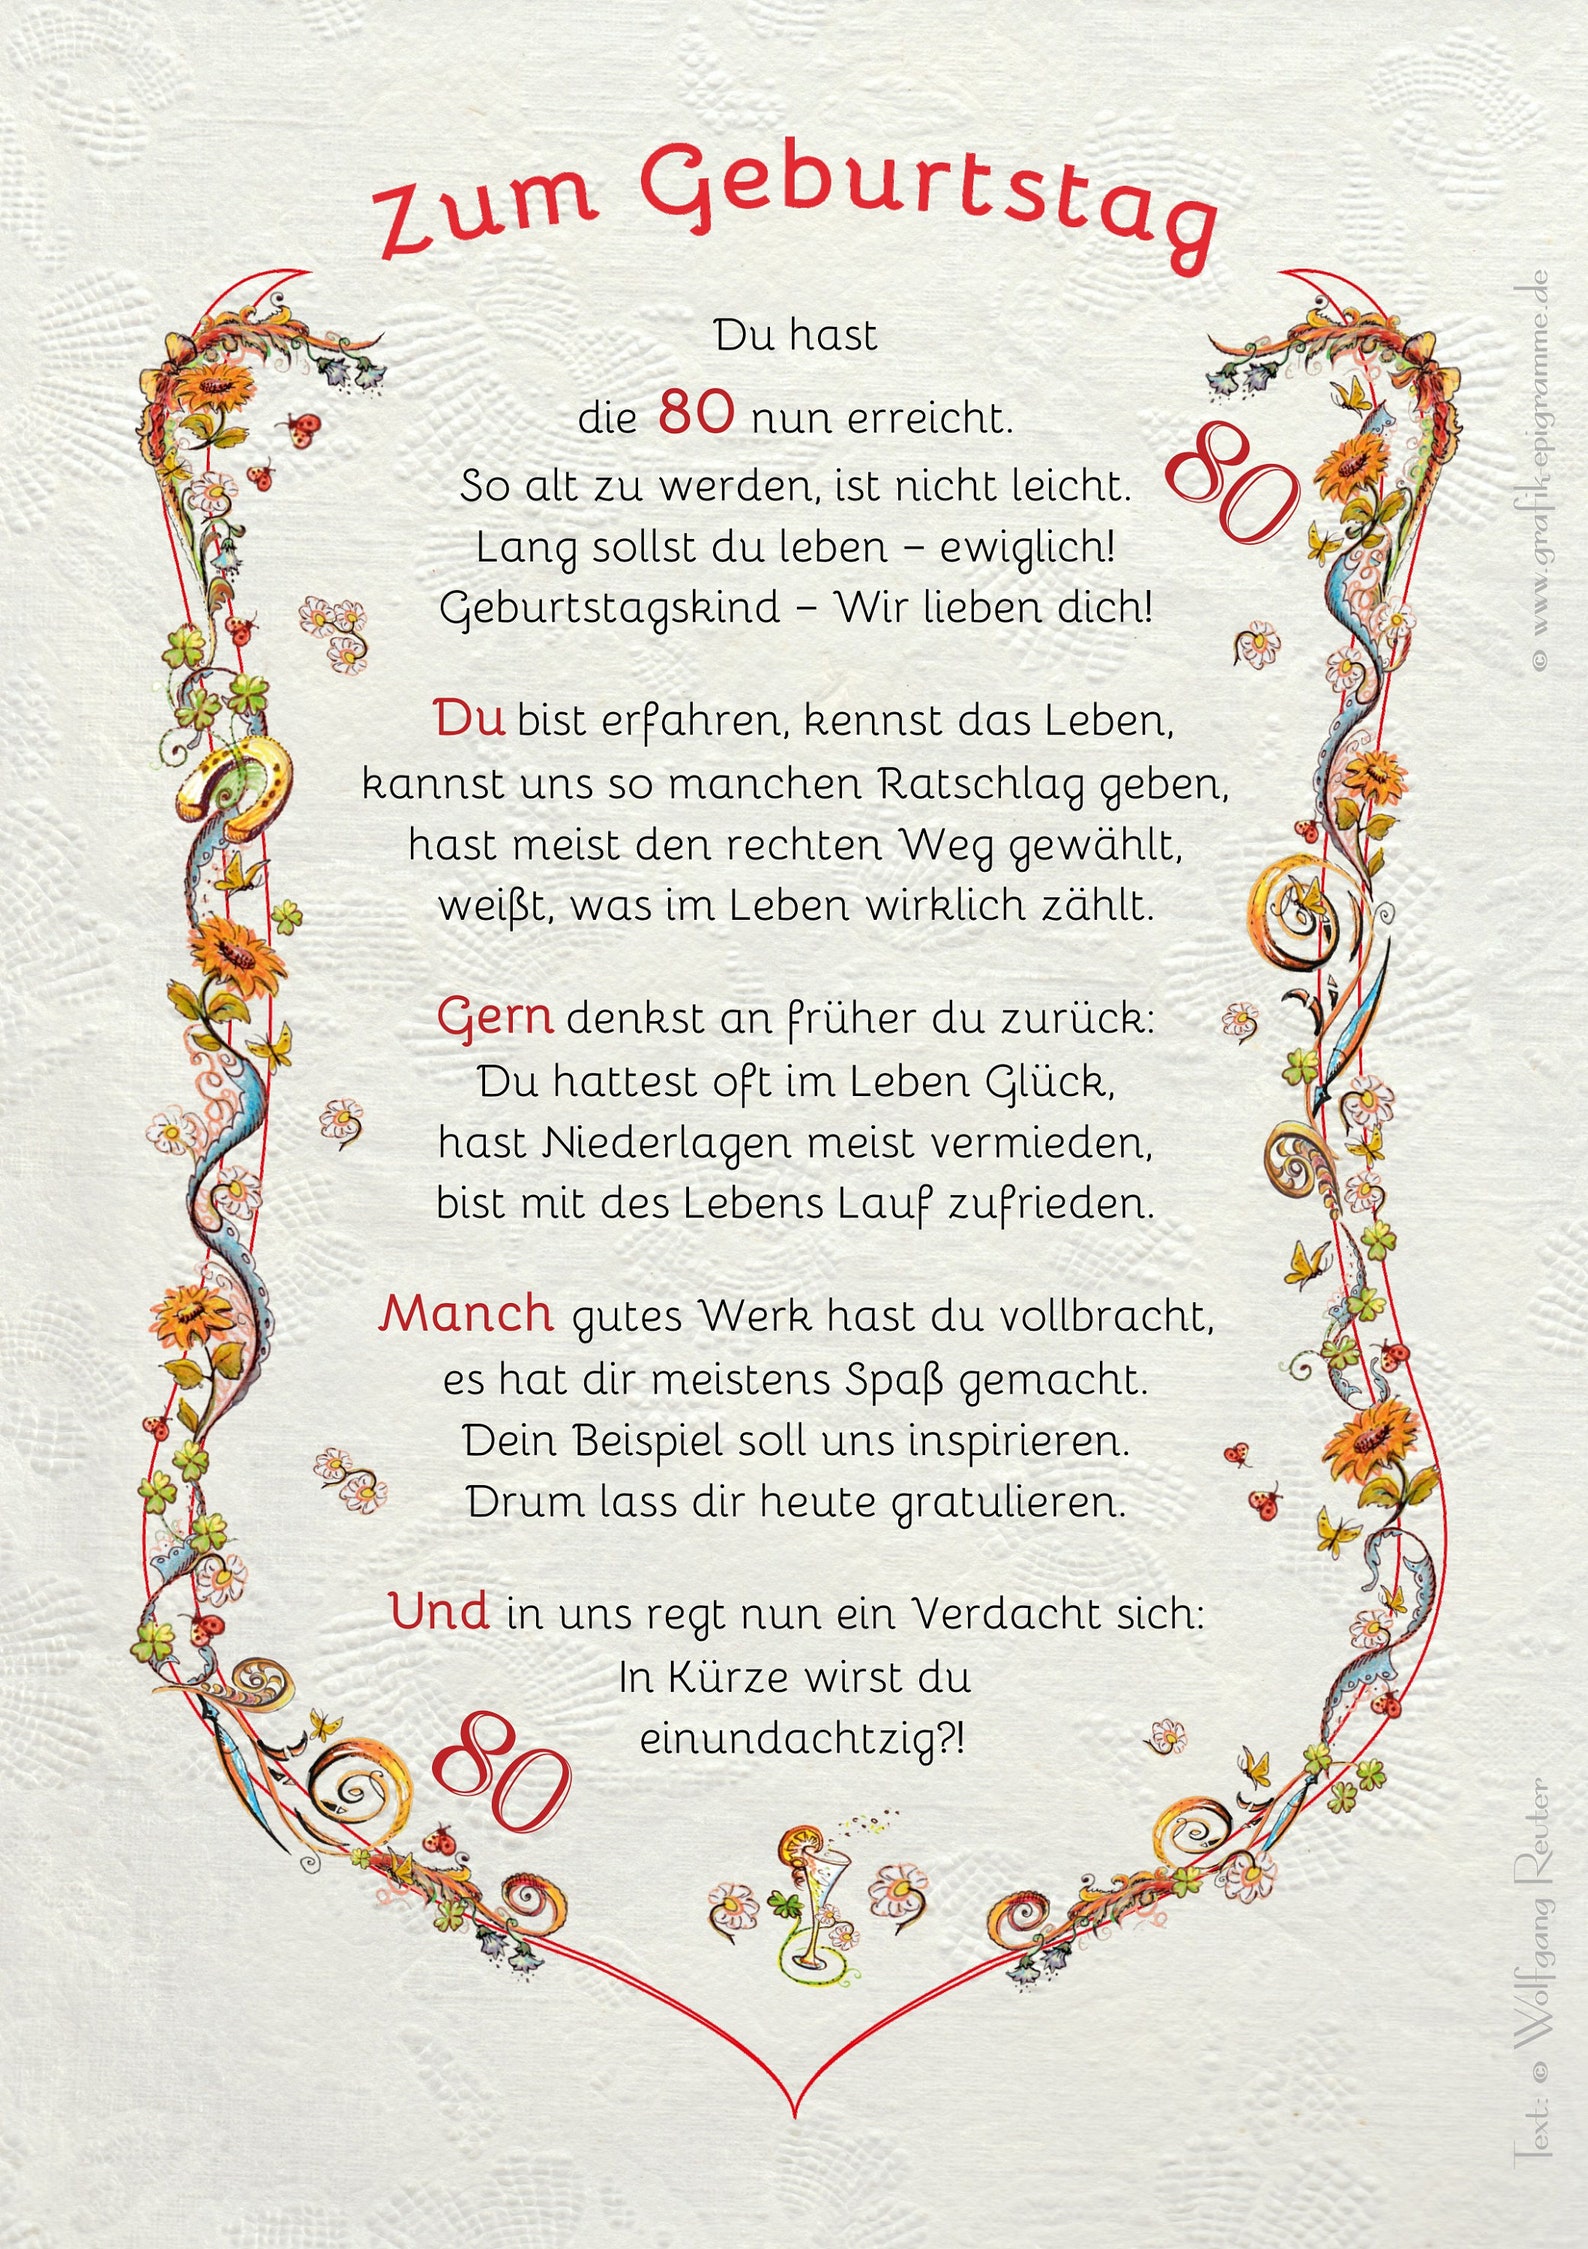 Zum Geburtstag
Du hast
die 80 nun erreicht.
So alt zu werden, ist nicht leicht.
Lang sollst du leben – ewiglich!
Geburtstagskind – Wir lieben dich!
80
Du bist erfahren, kennst das Leben,
kannst uns so manchen Ratschlag geben,
hast meist den rechten Weg gewählt,
weißt, was im Leben wirklich zählt.
Gern denkst an früher du zurück:
Du hattest oft im Leben Glück,
hast Niederlagen meist vermieden,
bist mit des Lebens Lauf zufrieden.
Manch gutes Werk hast du vollbracht,
es hat dir meistens Spaß gemacht.
Dein Beispiel soll uns inspirieren.
Drum lass dir heute gratulieren.
Und in uns regt nun ein Verdacht sich:
In Kürze wirst du
einundachtzig?!
80
© www.grafik.epigramme.de
Text: © Wolfgang Reuter